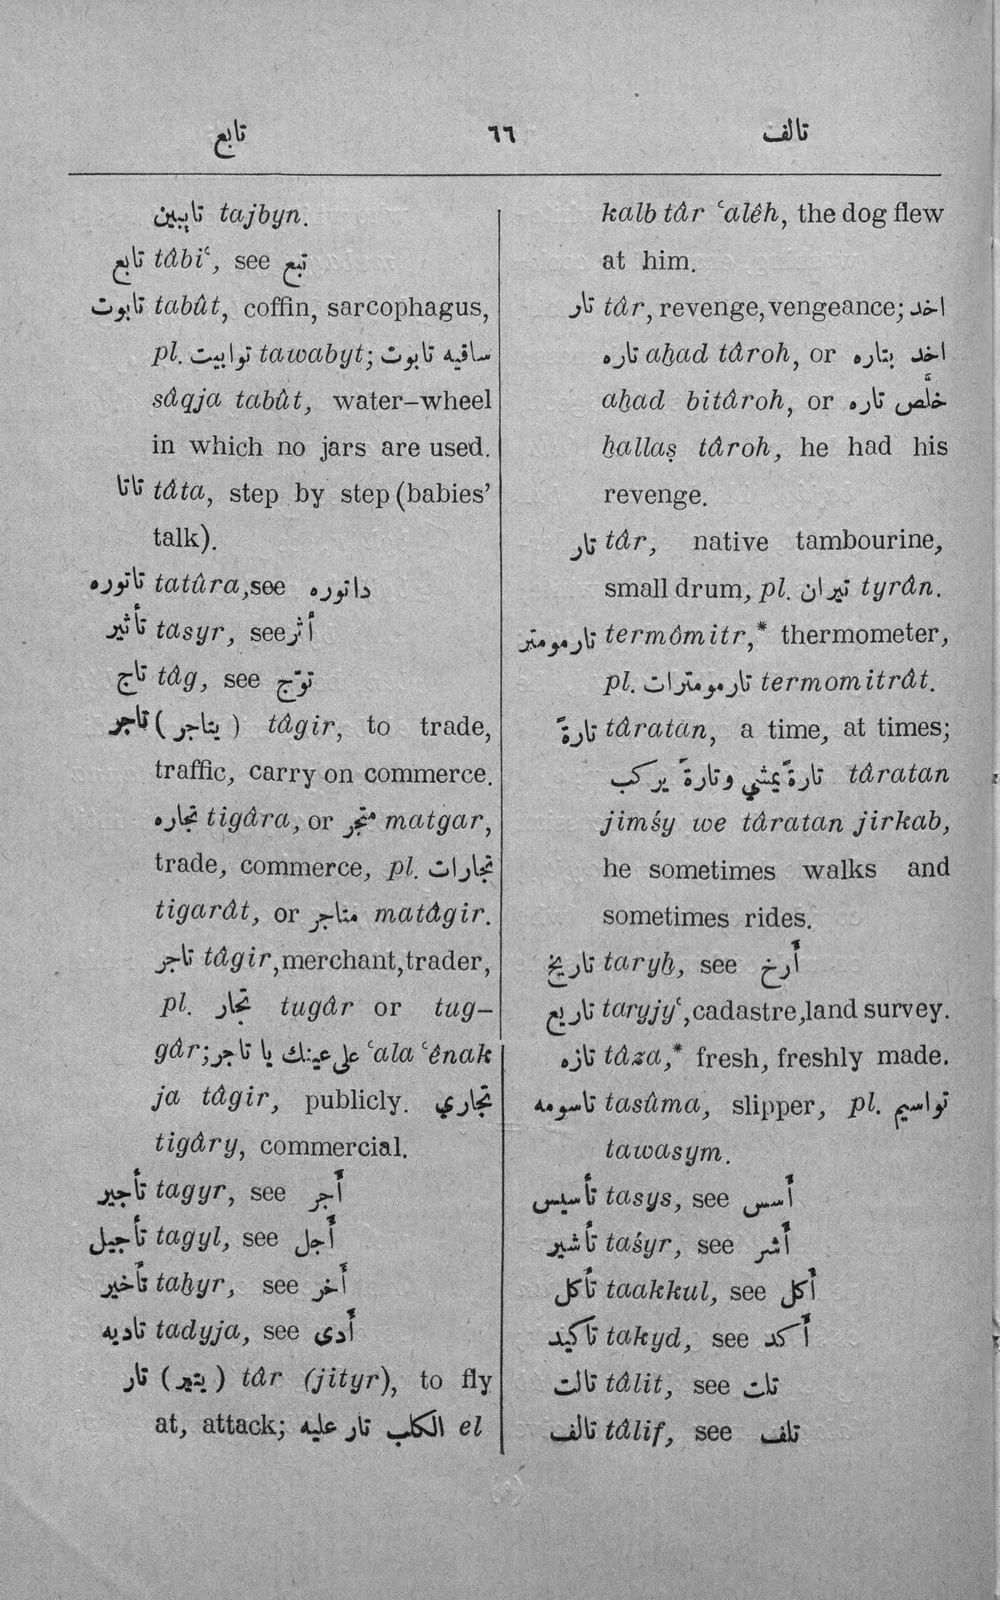 تابع ٦٦ تالف
تايبين tajbyn.
تابع tâbiʿ, see تبع
تابوت tabût, coffin, sarcophagus,
pl. توابيت tawabyt; ساقيه تابوت
sâqja tabût, water-wheel
in which no jars are used.
تاتا tâta, step by step (babies’
talk).
تاتوره tatûra, see داتوره
تأثير tasyr, see أثر
تاج tâg, see توّج
تاجر (يتاجر) tâgir, to trade,
traffic, carry on commerce.
تجاره tigâra, or متجر matgar,
trade, commerce, pl. تجارات
tigarât, or متاجر matâgir.
تاجر tâgir, merchant, trader,
pl. تجار tugâr or tug-
gâr; على عينك يا تاجر ʿala ʿênak
ja tâgir, publicly. تجاري
tigâry, commercial.
تأجير tagyr, see أجر
تأجيل tagyl, see أجل
تأخير taẖyr, see أخر
تاديه tadyja, see أدى
تار (يتير) târ (jityr), to fly
at, attack; الكلب تار عليه el
kalb târ ʿalêh, the dog flew
at him.
تار târ, revenge, vengeance; اخد
تاره aẖad târoh, or اخد بتاره
aẖad bitâroh, or خلَّص تاره
ẖallaṣ târoh, he had his
revenge.
تار târ, native tambourine,
small drum, pl. تيران tyrân.
تارمومتر termômitr,* thermometer,
pl. تارمومترات termomitrât.
تارةً târatan, a time, at times;
تارةً يمشي وتارةً يركب târatan
jimśy we târatan jirkab,
he sometimes walks and
sometimes rides.
تاريخ taryẖ, see أرخ
تاريع taryjyʿ, cadastre, land survey.
تازه tâza,* fresh, freshly made.
تاسومه tasûma, slipper, pl. تواسيم
tawasym.
تأسيس tasys, see أسس
تأشير taśyr, see أشر
تأكل taakkul, see أكل
تاكيد takyd, see أكد
تالت tâlit, see تلت
تالف tâlif, see تلف